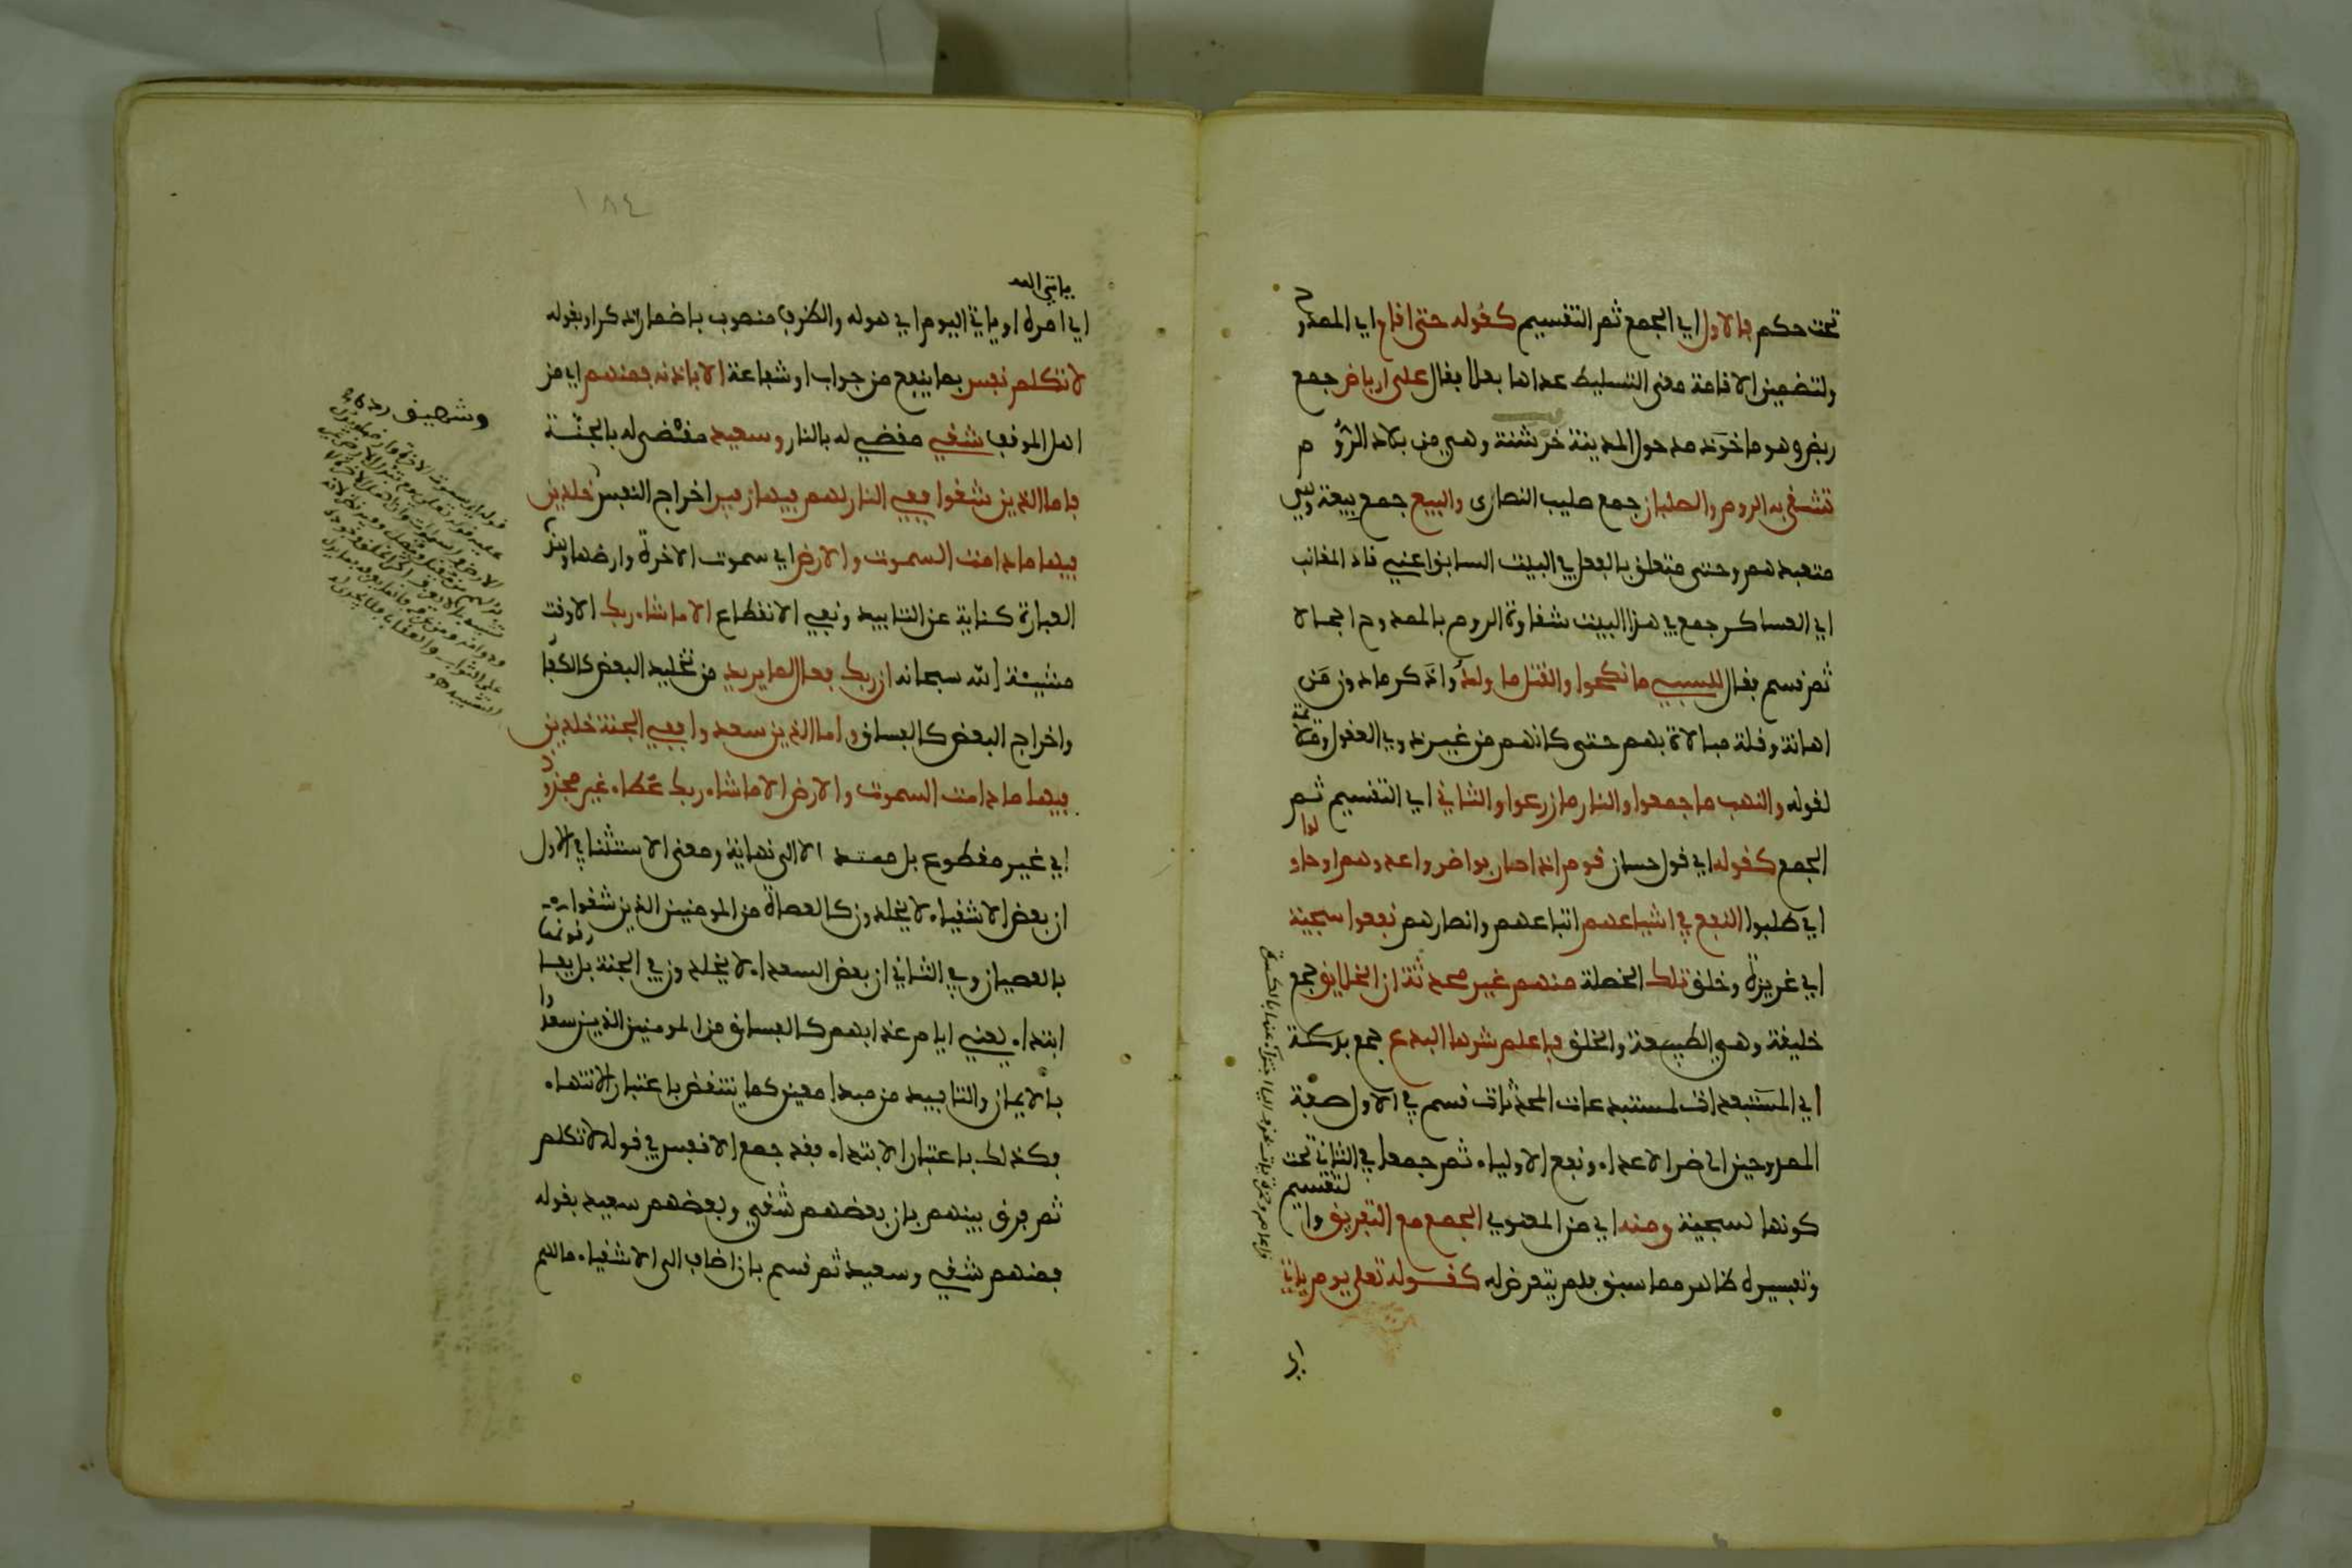 تحت حكم فالاول اي الجمع ثم التقسيم كقوله حتى اقام اي الممدوح
ولتضمين الاقامة معنى التسليط عداها بعلا فقال على ارباض جمع
ربض وهو ما حول المدينة خرشنة وهي من بلاد الروم
تشقى به الروم والصلبان جمع صليب النصارى والبيع جمع بيعة وهي
متعبدهم وحتى متعلق بالفعل في البيت السابق اعني قاد المقانب
اي العساكر جمع في هذا البيت شقاوة الروم بالممدوح اجمالا
ثم قسم فقال للسبي ما نكحوا والقتل ما ولدوا ذكر ما دون من
اهانة وقلة مبالاة بهم حتى كانهم من غير ذوي العقول وملائمة
لقوله والنهب ما جمعوا والنار ما زرعوا والثاني اي التقسيم ثم
الجمع كقوله اي قول حسان قوم اذا حاربوا ضروا عدوهم او حاولوا
اي طلبوا النفع في اشياعهم اتباعهم وانصارهم نفعوا سجية
اي غريزة وخلق تلك الخصلة منهم غير محدثة ان الخلايق جمع
خليقة وهي الطبيعة والخلق فاعلم شرها البدع جمع بدعة
اي المستبعدات لمستبدعات المحدثات قسم في الاول صفة
الممدوحين الى ضر الاعداء ونفع الاولياء ثم جمعها في الثاني تحت
كونها سجية ومنه اي من المعنوي الجمع مع التفريق والتقسيم
وتفسيره ظاهر مما سبق فلم يتعرض له كقوله تعلى يوم ياتي
اي
١٨٤
ياتي الله
اي امره او ياتي اليوم اي هوله والظرف منصوب باضمار اذكر او بقوله
لا تكلم نفس بما ينفع من جواب او شفاعة الا باذنه فمنهم اي من
اهل الموقف شقي مقضي له بالنار وسعيد مقضي له بالجنة
فاما الذين شقوا ففي النار لهم فيها زفير اخراج النفس خلدين
فيها ما دامت السموت والارض اي سموت الاخرة وارضها وهذه
العبارة كناية عن التابيد ونفي الانقطاع الا ما شاء ربك الا وقت
مشيئة الله سبحانه ان ربك فعال لما يريد من تخليد البعض كالكفار
واخراج البعض كالفساق واما الذين سعدوا ففي الجنة خلدين
فيها ما دامت السموت والارض الا ما شاء ربك عطاء غير مجذوذ
اي غير مقطوع بل ممتد الا الى نهاية ومعنى الاستثنا في الاول
ان بعض الاشقياء لا يخلدون كالعصاة من المومنين الذين شقوا
بالعصيان وفي الثاني ان بعض السعداء لا يخلدون في الجنة بل يفارقونها
ابتداء يعني ايام عذابهم كالفساق من المومنين الذين سعدوا
بالايمان والتابيد من مبدا معين كما ينتقض باعتبار الانتهاء
فكذلك باعتبار الابتداء فقد جمع الانفس في قوله لا تكلم
ثم فرق بينهم بان بعضهم شقي وبعضهم سعيد بقوله
فمنهم شقي وسعيد ثم قسم بان اضاف الى الاشقياء ما لهم
وشهيق رده